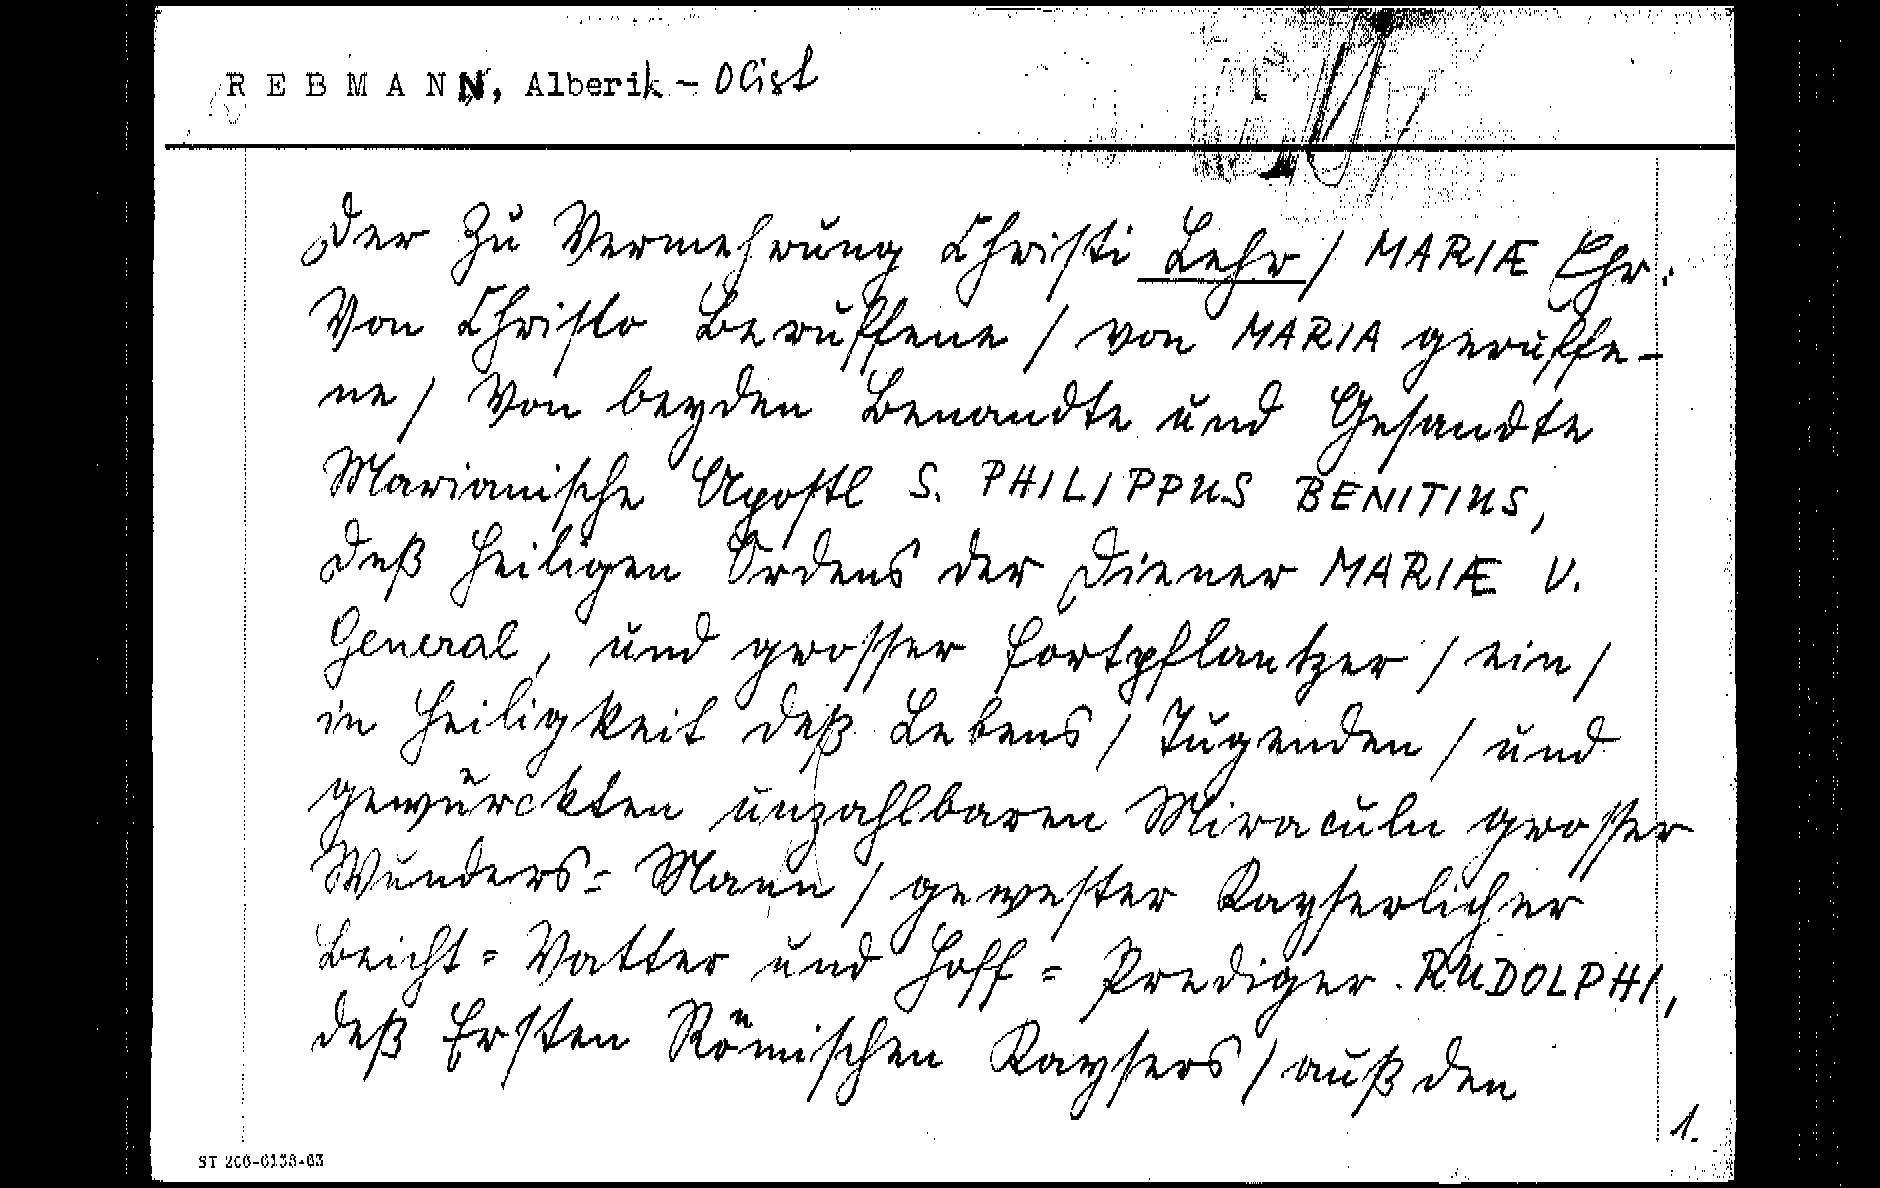 REBMANN, Alberik - OCist
Der Zu Vermehrung Christi Lehr / MARIÆ Ehr.
Von Christo Beruffene / von MARIA geruffe-
ne / Von beyden Benandte und Gesandte
Marianische Apostl S. PHILIPPUS BENITIUS,
deß heiligen Ordens der Diener MARIÆ V.
General, und grosser Fortpflantzer / ein /
in Heiligkeit deß Lebens / Tugenden / und
gewürckten unzahlbaren Miraculn grosser
Wunders= Mann / gewester Kayserlicher
Beicht= Vatter und Hoff= Prediger RUDOLPHI,
deß Ersten Römischen Kaysers / auß den
1.
ST 206-6138-63